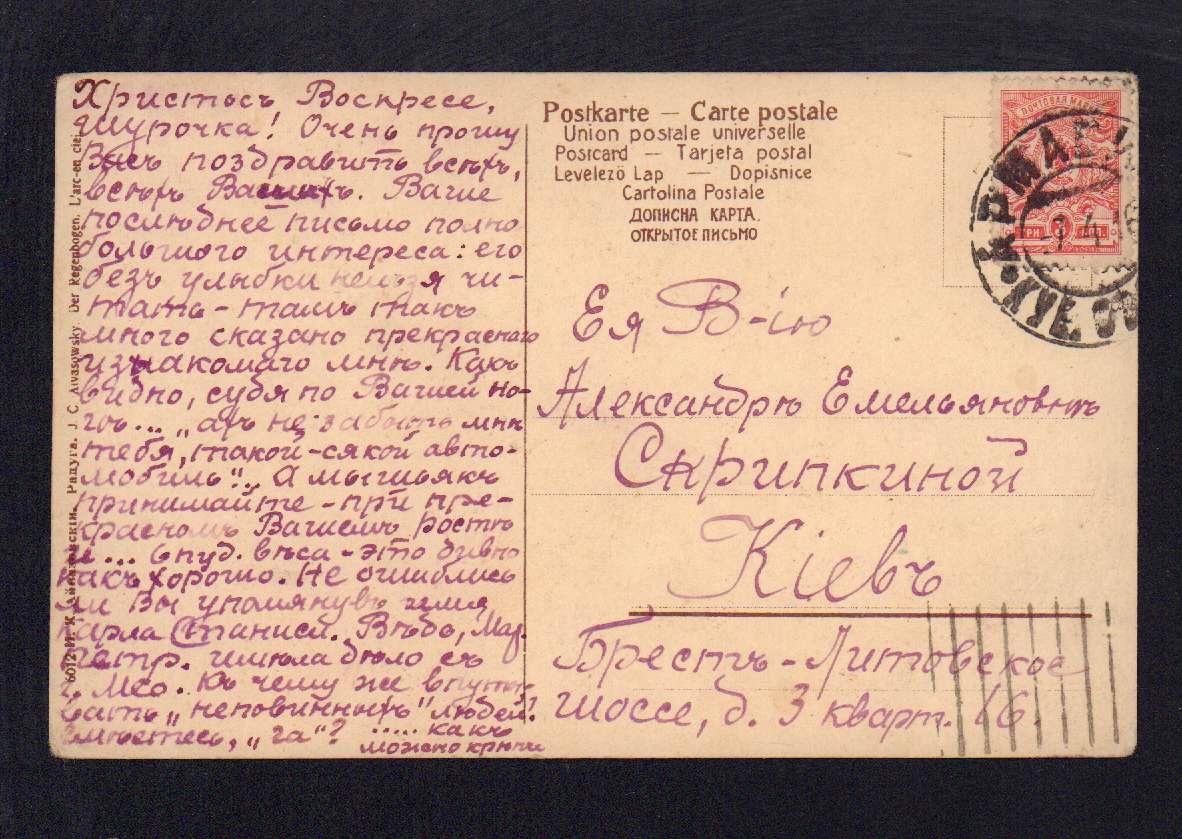 Христосъ Воскресе,
Шурочка! Очень прошу
Васъ поздравить всѣхъ,
всѣхъ Вашихъ. Ваше
послѣднее письмо полно
большого интереса: его
безъ улыбки нельзя чи-
тать - тамъ такъ
много сказано прекраснаго
и знакомаго мнѣ. Какъ
видно, судя по Вашей но-
гѣ... „ахъ не забыть мнѣ
тебя, такой-сякой авто-
мобиль". А мышьякъ
принимайте - при пре-
красномъ Вашемъ ростѣ
и... 6 пуд. вѣса - это дивно
какъ хорошо. Не ошиблись
ли Вы упомянувъ имя
Карла Станисл. Вѣдь, Мар.
Петр. имѣла дѣло съ
г. Мео. Къ чему же впуты-
вать „неповинныхъ" людей?
Смѣетесь, „га"? ..... какъ
можно крѣпче
6012 И. К. Айвазовскій. Радуга. J. C. Aivasowsky. Der Regenbogen. L'arc-en ciel.
Postkarte — Carte postale
Union postale universelle
Postcard — Tarjeta postal
Levelezö Lap — Dopisnice
Cartolina Postale
ДОПИСНА КАРТА.
ОТКРЫТОЕ ПИСЬМО
ПОЧТОВАЯ МАРКА
ТРИ 3 КОП.
Ея В-ію
Александрѣ Емельяновнѣ
Скрипкиной
Кіевъ
Брестъ-Литовское
шоссе, д. 3 кварт. 16.